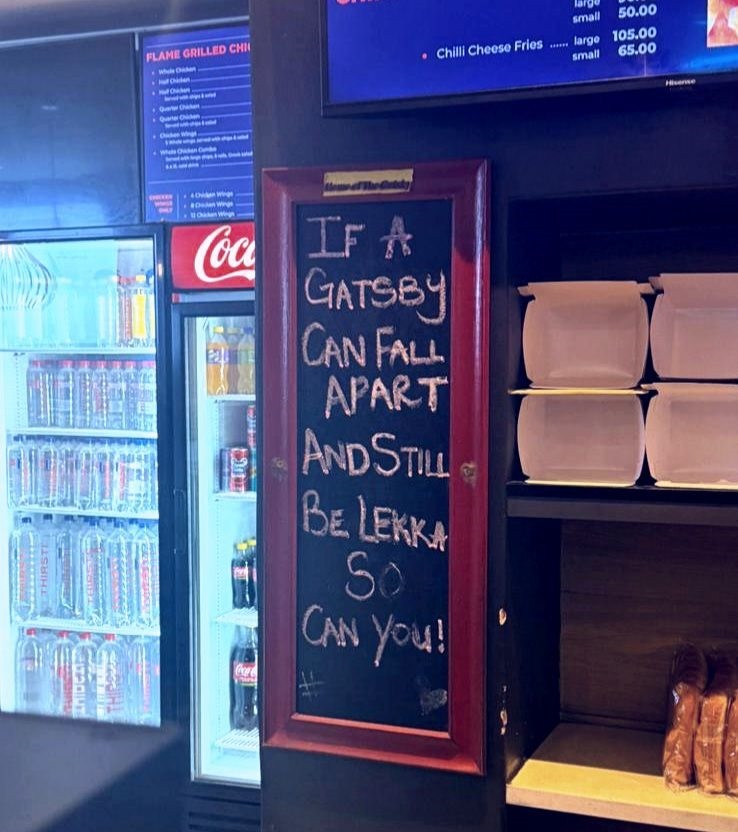 large
small 50.00
Chilli Cheese Fries ...... large 105.00
small 65.00
Hisense
FLAME GRILLED CHIC
Whole Chicken
Half Chicken
Half Chicken
Served with chips & salad
Quarter Chicken
Quarter Chicken
Served with chips & salad
Chicken Wings
Whole Chicken Combo
CHICKEN
WINGS
ONLY
4 Chicken Wings
8 Chicken Wings
12 Chicken Wings
Coca
Home of The Gatsby
IF A
GATSBY
CAN FALL
APART
AND STILL
BE LEKKA
SO
CAN YOU!
#
THIRST!
Coca